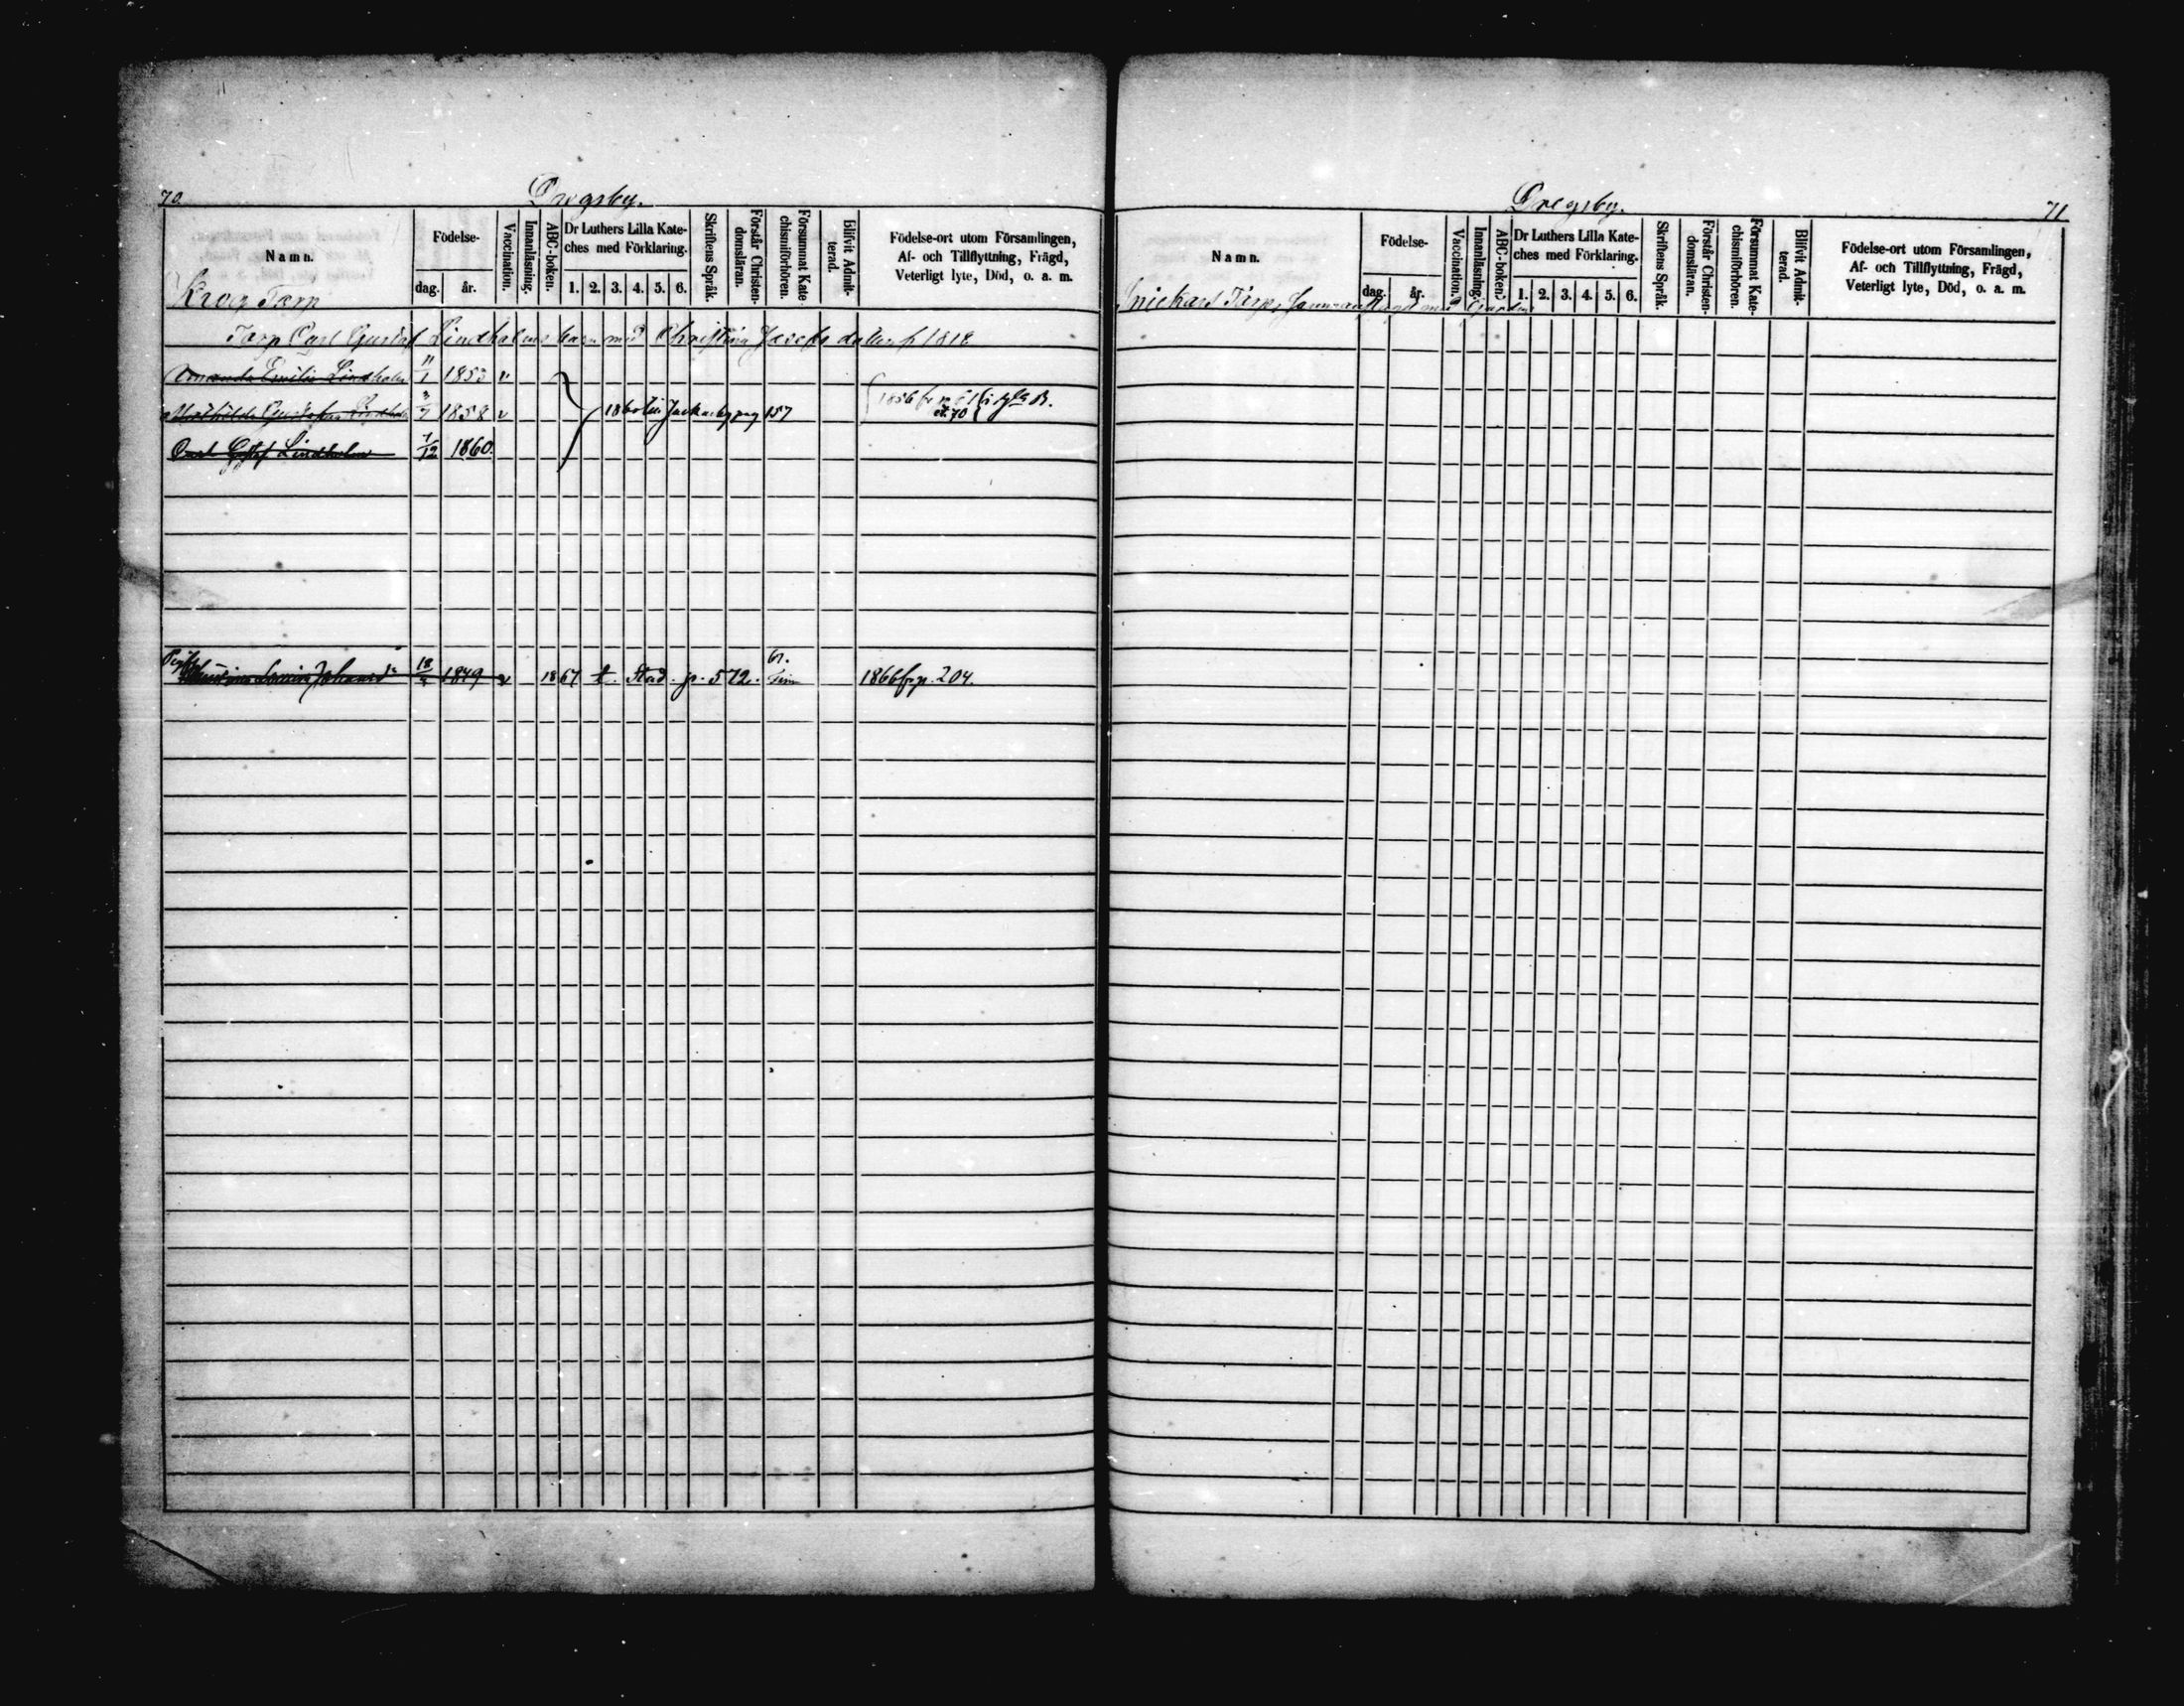 70.
Dregsby.
Namn.
Födelse-
dag.
år.
Vaccination.
Innanläsning.
ABC-boken.
Dr Luthers Lilla Kate-
ches med Förklaring.
1. 2. 3. 4. 5. 6.
Skriftens Språk.
Förstår Christen-
domsläran.
Försummat Kate-
chismiförhören.
Blifvit Admit-
terad.
Födelse-ort utom Församlingen,
Af- och Tillflyttning, Frägd,
Veterligt lyte, Död, o. a. m.
Krog Torp
Torp Carl Gustaf Lindholms barn med Christina Jacobs dotter f 1818
Amanda Emilia Lindholm 11/1 1853 v
Mathilda Gustafva Lindholm 1858 v 1860 till pag 157
Carl Gustaf Lindholm 1/12 1860.
Lovisa Johansd:r 18 1849 v 1867 t. Stad. p. 572. 1866 fr. p. 204.
71
Dregsby.
Namn.
Födelse-
dag.
år.
Vaccination.
Innanläsning.
ABC-boken.
Dr Luthers Lilla Kate-
ches med Förklaring.
1. 2. 3. 4. 5. 6.
Skriftens Språk.
Förstår Christen-
domsläran.
Försummat Kate-
chismiförhören.
Blifvit Admit-
terad.
Födelse-ort utom Församlingen,
Af- och Tillflyttning, Frägd,
Veterligt lyte, Död, o. a. m.
Snickars Torp, med Gården